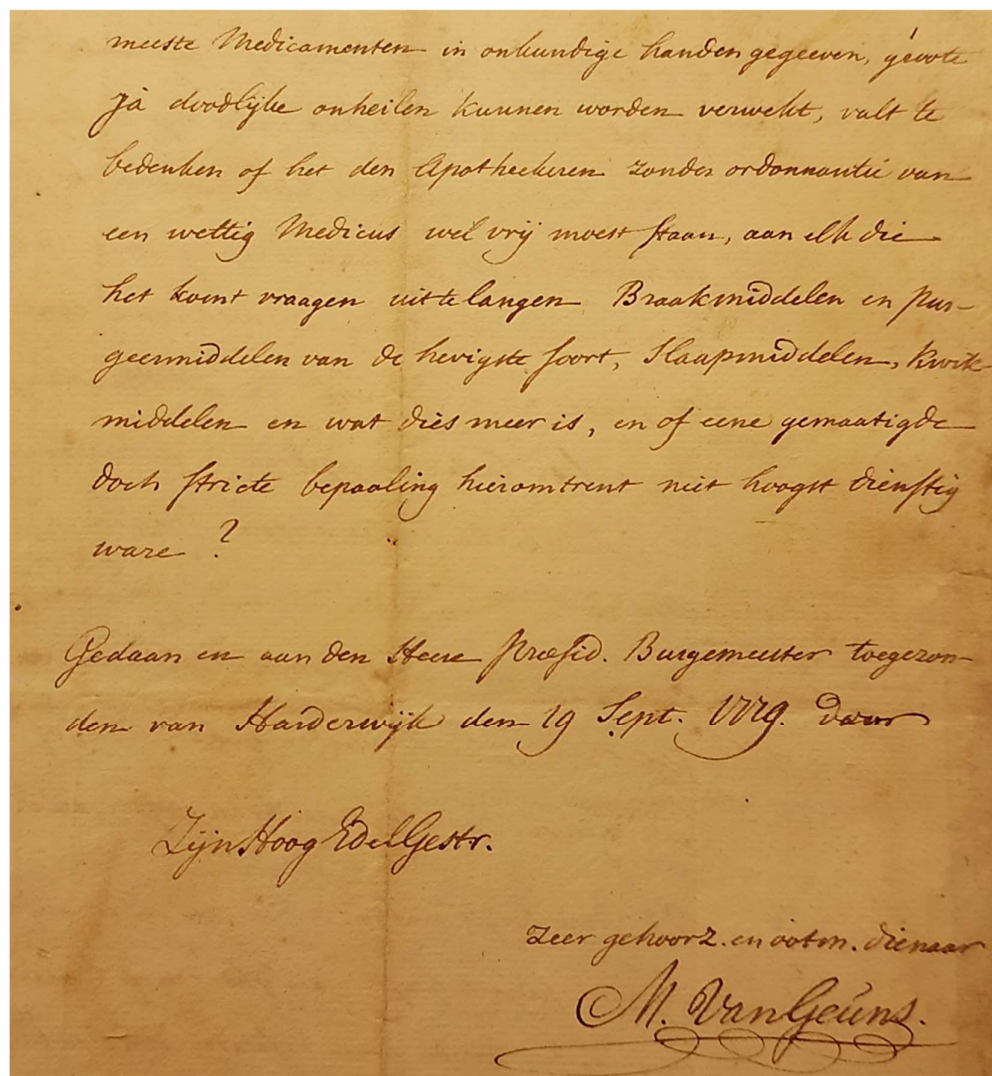 meeste Medicamenten in onkundige handen gegeeven, groote
ja doodlijke onheilen kunnen worden verwekt, valt te
bedenken of het den Apotheekeren zonder ordonnantie van
een wettig Medicus wel vrij moest staan, aan elk die
het komt vraagen uittelangen Braakmiddelen en Pur-
geermiddelen van de hevigste soort, Slaapmiddelen, kwik-
middelen en wat dies meer is, en of eene gemaatigde
doch stricte bepaaling hieromtrent niet hoogst dienstig
ware ?
Gedaan en aan den Heere Præsid. Burgemeester toegezon-
den van Harderwijk den 19 Sept. 1779. door
Zijn Hoog Edel Gestr.
zeer gehoorz. en ootm. dienaar
M. Van Geuns.